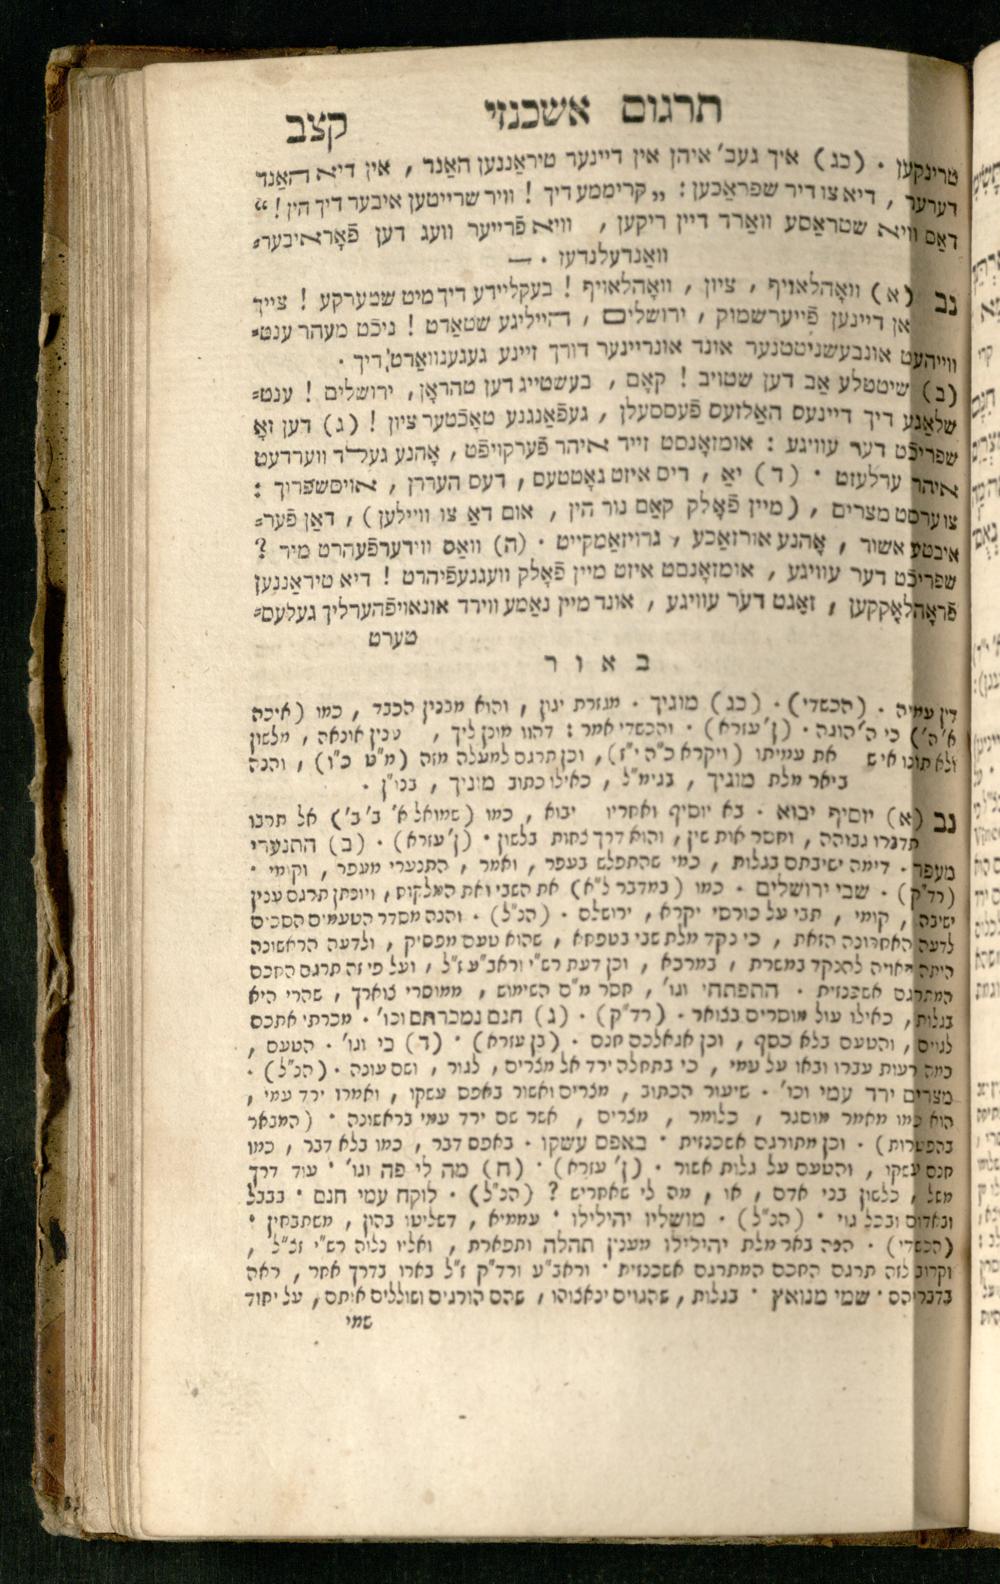 תרגום אשכנזי קצב
טרינקען . (כג) איך געב' איהן אין דיינער טיראַננען האַנד , אין דיא האַנד
דערער , דיא צו דיר שפראַכען : „ קריממע דיך ! וויר שרייטען איבער דיך הין ! “
דאַס וויא שטראַסע וואַרד דיין ריקען , וויא פֿרייער וועג דען פֿאָראיבער=
וואַנדעלנדען . —
נב (א) וואָהלאויף , ציון , וואָהלאויף ! בעקליידע דיך מיט שטערקע ! צייך
אן דיינען פֿייערשמוק , ירושלים , הייליגע שטאַדט ! ניכֿט מעהר ענט=
ווייהעט אונבעשניטטנער אונד אונריינער דורך זיינע געגענוואַרט דיך .
(ב) שיטטלע אַב דען שטויב ! קאָם , בעשטייג דען טהראָן , ירושלים ! ענט=
שלאַגע דיך דיינעס האַלזעס פֿעססעלן , געפֿאַנגנע טאָכֿטער ציון ! (ג) דען זאָ
שפריכֿט דער עוויגע : אומזאָנסט זייד איהר פֿערקויפֿט , אָהנע געלד ווערדעט
איהר ערלעזט . (ד) יאַ , דיס איזט גאָטטעס , דעס העררן , אויסשפרוך :
צו ערסט מצרים , (מיין פֿאָלק קאַם נור הין , אום דאַ צו וויילען) , דאַן פֿער=
איבטע אשור , אָהנע אורזאַכע , גרויזאַמקייט . (ה) וואַס ווידערפֿעהרט מיר ?
שפריכֿט דער עוויגע , אומזאָנסט איזט מיין פֿאָלק וועגגעפֿיהרט ! דיא טיראַננען
פֿראָהלאָקקען , זאַגט דער עוויגע , אונד מיין נאַמע ווירד אונאויפֿהערליך געלעס=
טערט
באור
דין עמיה . (הכשדי) . (כג) מוגיך . מגזרת יגון , והוא מבנין הכבד , כמו (איכה
א' ה') כי ה' הוגה . (ן' עזרא) . והכשדי אמר : דהוו מונן ליך , ענין אונאה , מלשון
ולא תונו איש את עמיתו (ויקרא כ"ה י"ז) , וכן תרגם למעלה מזה (מ"ט כ"ו) , והנה
ביאר מלת מוגיך , בגימ"ל , כאילו כתוב מוניך , בנו"ן .
נב (א) יוסיף יבוא . בא יוסיף ואחריו יבוא , כמו (שמואל א' ב' ב') אל תרבו
תדברו גבוהה , וחסר אות שין , והוא דרך צחות בלשון . (ן' עזרא) . (ב) התנערי
מעפר . דימה ישיבתם בגלות , כמי שהתפלש בעפר , ואמר , התנערי מעפר , וקומי .
(רד"ק) . שבי ירושלים . כמו (במדבר ל"א) את השבי ואת המלקוח , ויונתן תרגם ענין
ישיבה , קומי , תבי על כורסי יקרא , ירושלם . (הנ"ל) . והנה מסדר הטעמים הסכים
לדעה האחרונה הזאת , כי נקד מלת שבי בטפחא , שהוא טעם מפסיק , ולדעה הראשונה
היתה ראויה להנקד במשרת , במרכא , וכן דעת רש"י וראב"ע ז"ל , ועל פי זה תרגם החכם
המתרגם אשכנזית . התפתחי וגו' , חסר מ"ם השימוש , ממוסרי צוארך , שהרי היא
בגלות , כאילו עול מוסרים בצואר . (רד"ק) . (ג) חנם נמכרתם וכו' . מכרתי אתכם
לגוים , והטעם בלא כסף , וכן אגאלכם חנם . (בן עזרא) . (ד) כי וגו' . הטעם ,
כמה רעות עברו ובאו על עמי , כי בתחלה ירד אל מצרים , לגור , ושם עונה . (הנ"ל) .
מצרים ירד עמי וכו' . שיעור הכתוב , מצרים ואשור באפס עשקו , ואמרו ירד עמי ,
הוא כמו מאמר מוסגר , כלומר , מצרים , אשר שם ירד עמי בראשונה . (המבאר
בהפטרות) . וכן מתורגם אשכנזית . באפס עשקו . באפס דבר , כמו בלא דבר , כמו
חנם עשקו , והטעם על גלות אשור . (ן' עזרא) . (ח) מה לי פה וגו' . עוד דרך
משל , כלשון בני אדם , או , מה לי שאחריש ? (הנ"ל) . לוקח עמי חנם . בבבל
ובאדום ובכל גוי . (הנ"ל) . מושליו יהילילו . עממיא , דשליטו בהון , משתבחין .
(הכשדי) . הנה באר מלת יהילילו מענין תהלה ותפארת , ואליו נלוה רש"י זצ"ל ,
וקרוב לזה תרגם החכם המתרגם אשכנזית . וראב"ע ורד"ק ז"ל בארו בדרך אחר , ראה
בדבריהם . שמי מנואץ . בגלות , שהגוים ינאצוהו , שהם הורגים ושוללים אותם , על יחוד
שמי